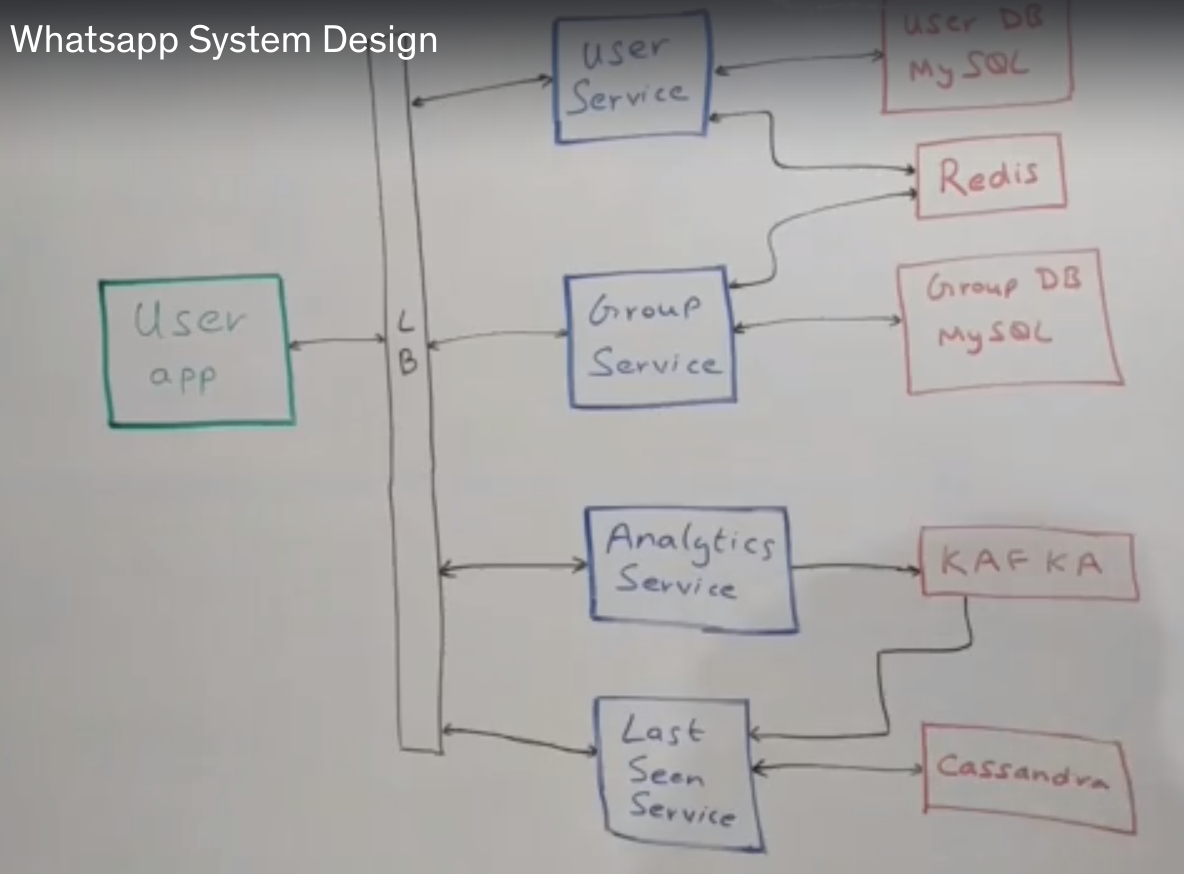 Whatsapp System Design
User
Service
User DB
MySQL
Redis
User
app
L
B
Group
Service
Group DB
MySQL
Analytics
Service
KAFKA
Last
Seen
Service
Cassandra